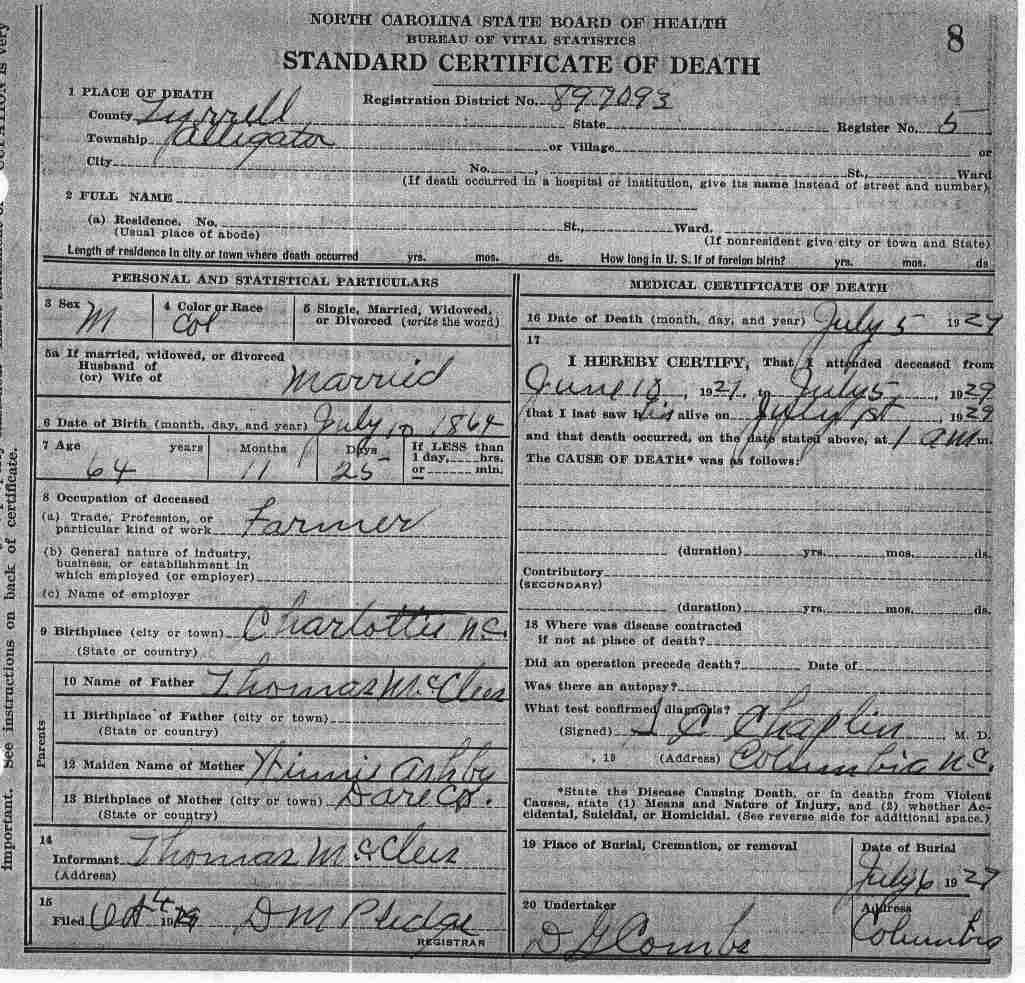 NORTH CAROLINA STATE BOARD OF HEALTH
BUREAU OF VITAL STATISTICS
STANDARD CERTIFICATE OF DEATH
8
1 PLACE OF DEATH Registration District No. 897093
County Tyrrell State Register No. 5
Township Alligator or Village or
City No. , St., Ward
(If death occurred in a hospital or institution, give its name instead of street and number)
2 FULL NAME
(a) Residence. No. St., Ward.
(Usual place of abode) (If nonresident give city or town and State)
Length of residence in city or town where death occurred yrs. mos. ds. How long in U. S. if of foreign birth? yrs. mos. ds.
PERSONAL AND STATISTICAL PARTICULARS
3 Sex M 4 Color or Race Col 5 Single, Married, Widowed, or Divorced (write the word)
5a If married, widowed, or divorced
Husband of
(or) Wife of Married
6 Date of Birth (month, day, and year) July 10 1864
7 Age years Months Days If LESS than
1 day, hrs.
64 11 25 or min.
8 Occupation of deceased
(a) Trade, Profession, or
particular kind of work Farmer
(b) General nature of industry,
business, or establishment in
which employed (or employer)
(c) Name of employer
9 Birthplace (city or town) Charlotte N.C.
(State or country)
Parents
10 Name of Father Thomas McClees
11 Birthplace of Father (city or town)
(State or country)
12 Maiden Name of Mother Winnie Ashby
13 Birthplace of Mother (city or town) Dare Co.
(State or country)
14
Informant Thomas McClees
(Address)
15
Filed Oct 4 1929 D M Pledge
REGISTRAR
MEDICAL CERTIFICATE OF DEATH
16 Date of Death (month, day, and year) July 5 1929
17
I HEREBY CERTIFY, That I attended deceased from
June 18, 1929, to July 5, 1929
that I last saw him alive on July 1st, 1929
and that death occurred, on the date stated above, at 1 am m.
The CAUSE OF DEATH* was as follows:
(duration) yrs. mos. ds.
Contributory
(SECONDARY)
(duration) yrs. mos. ds.
18 Where was disease contracted
if not at place of death?
Did an operation precede death? Date of
Was there an autopsy?
What test confirmed diagnosis?
(Signed) J C Chaplin M. D.
, 19 (Address) Columbia N.C.
*State the Disease Causing Death, or in deaths from Violent
Causes, state (1) Means and Nature of Injury, and (2) whether Ac-
cidental, Suicidal, or Homicidal. (See reverse side for additional space.)
19 Place of Burial, Cremation, or removal Date of Burial
July 6 1929
20 Undertaker Address
D G Combs Columbia
important. See instructions on back of certificate.